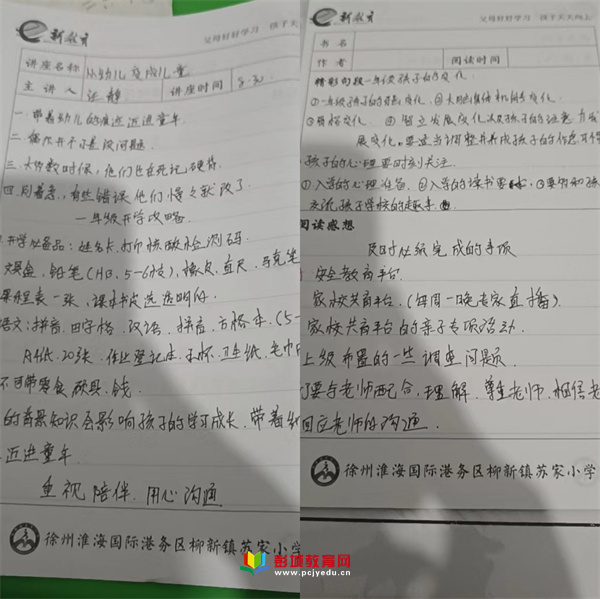 新教育
父母好好学习 孩子天天向上
讲座名称 从幼儿变成儿童
主讲人 张静 讲座时间 8.30
一.带着幼儿的走近迈进童年.
二.偏食并不只是孩子问题.
三.大多数时候,他们还在死记,硬背.
四.别着急,有些错误他们慢々就改了.
一年级开学攻略.
开学必备品:姓名卡,打印核酸检测码.
文具盒,铅笔(HB,5-6支),橡皮,直尺,马克笔
课程表一张,课本书皮选透明的.
语文:拼音,田字格,汉语,拼音,方格本,(5-
A4纸.20张,作业登记本,水杯,卫生纸,毛巾
不可带零食,玩具,钱.
的背景知识会影响孩子的学习成长,带着幼
迈进童年.
重视陪伴.用心沟通
徐州淮海国际港务区柳新镇苏家小学
新教育
父母好好学习 孩子天天向上
书名
作者 阅读时间
精彩句段 一年级孩子的变化.
①一年级孩子的自然变化,②大脑准备机制变化.
展变化,要适当调整并养成孩子的
孩子的心理要时刻关注.
①入学的心理准备,②入学的读书要
交流孩子学校的趣事
阅读感想
及时在班完成的事项
安全教育平台.
家校共育平台.(每周一晚专家直播).
家校共育平台的亲子专项活动.
上级布置的一些调查问题.
们要与老师配合,理解,尊重老师,相信老
回应老师的沟通.
徐州淮海国际港务区柳新镇苏家小学
彭城教育网
www.pcjyedu.cn